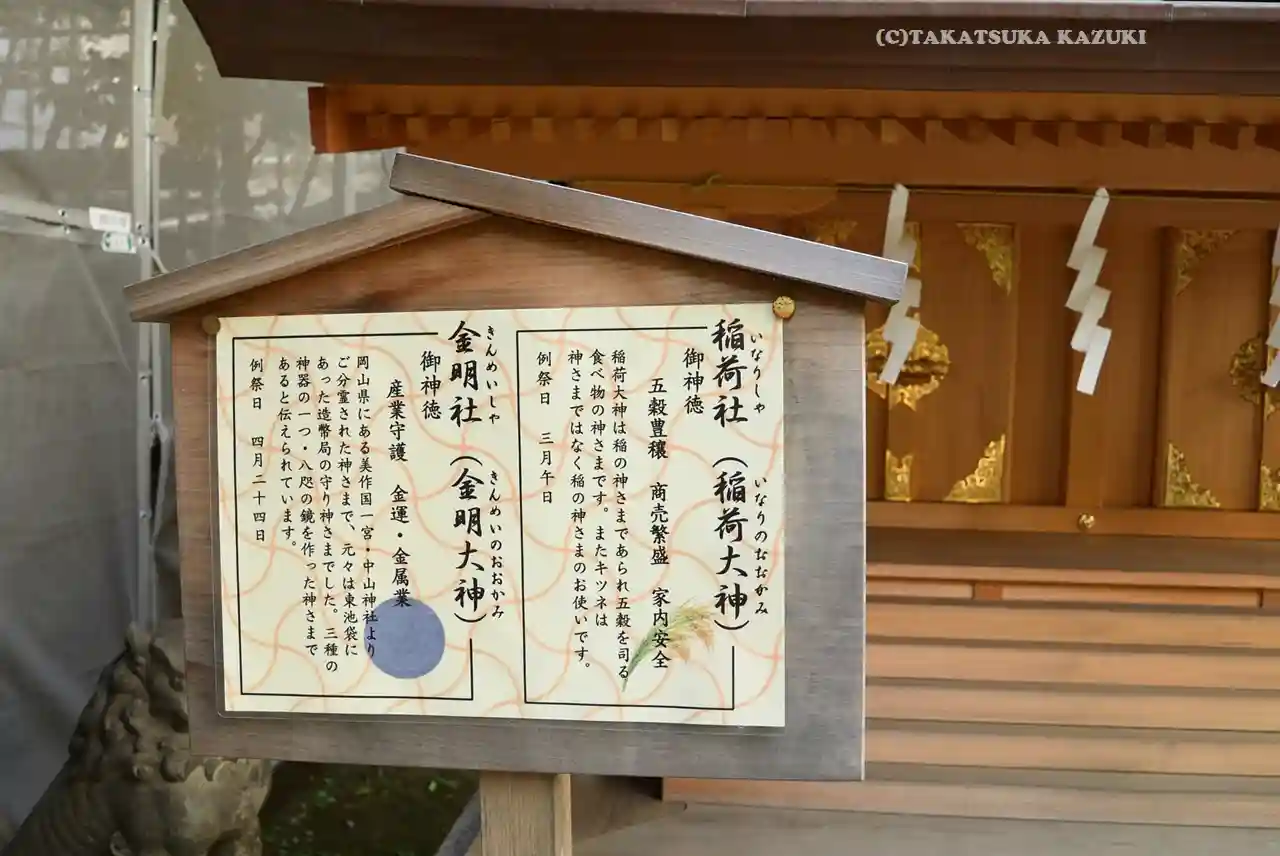 (C)TAKATSUKA KAZUKI
稲荷社（稲荷大神）
いなりしゃ いなりのおおかみ
御神徳
五穀豊穣 商売繁盛 家内安全
稲荷大神は稲の神さまであられ五穀を司る
食べ物の神さまです。またキツネは
神さまではなく稲の神さまのお使いです。
例祭日 三月午日
金明社（金明大神）
きんめいしゃ きんめいのおおかみ
御神徳
産業守護 金運・金属業
岡山県にある美作国一宮・中山神社より
ご分霊された神さまで、元々は東池袋に
あった造幣局の守り神さまでした。三種の
神器の一つ・八咫の鏡を作った神さまで
あると伝えられています。
例祭日 四月二十四日